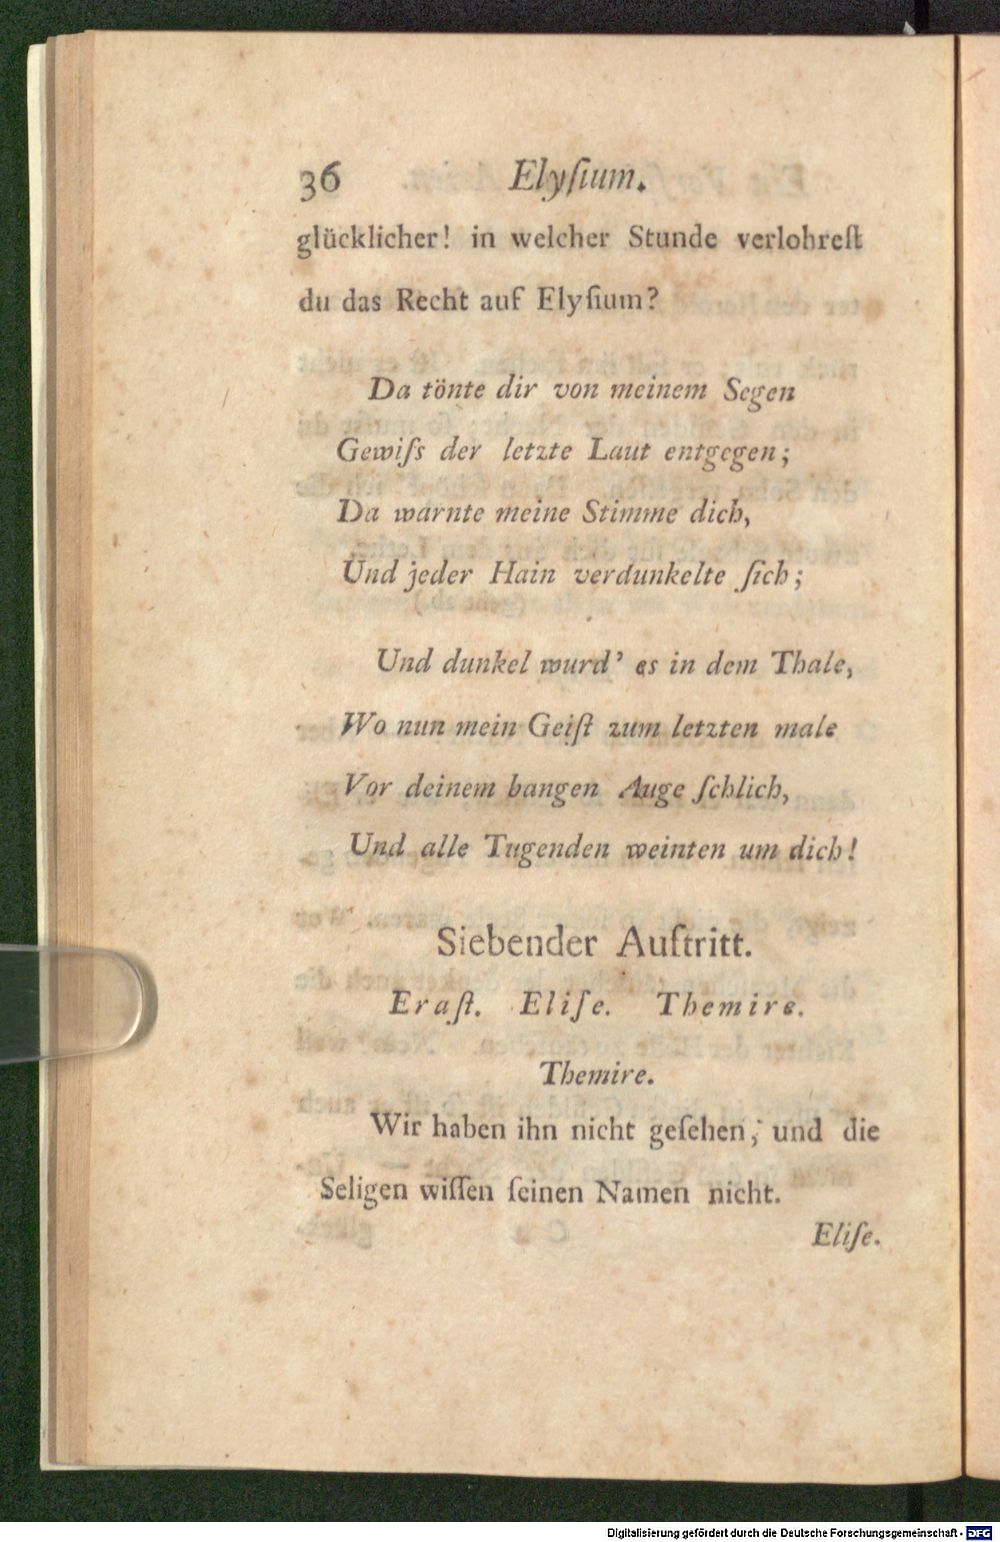 36 Elyſium.
glücklicher! in welcher Stunde verlohreſt
du das Recht auf Elyſium?
Da tönte dir von meinem Segen
Gewiſs der letzte Laut entgegen;
Da warnte meine Stimme dich,
Und jeder Hain verdunkelte ſich;
Und dunkel wurd' es in dem Thale,
Wo nun mein Geiſt zum letzten male
Vor deinem bangen Auge ſchlich,
Und alle Tugenden weinten um dich!
Siebender Auftritt.
Eraſt. Eliſe. Themire.
Themire.
Wir haben ihn nicht geſehen, und die
Seligen wiſſen ſeinen Namen nicht.
Eliſe.
Digitalisierung gefördert durch die Deutsche Forschungsgemeinschaft - DFG